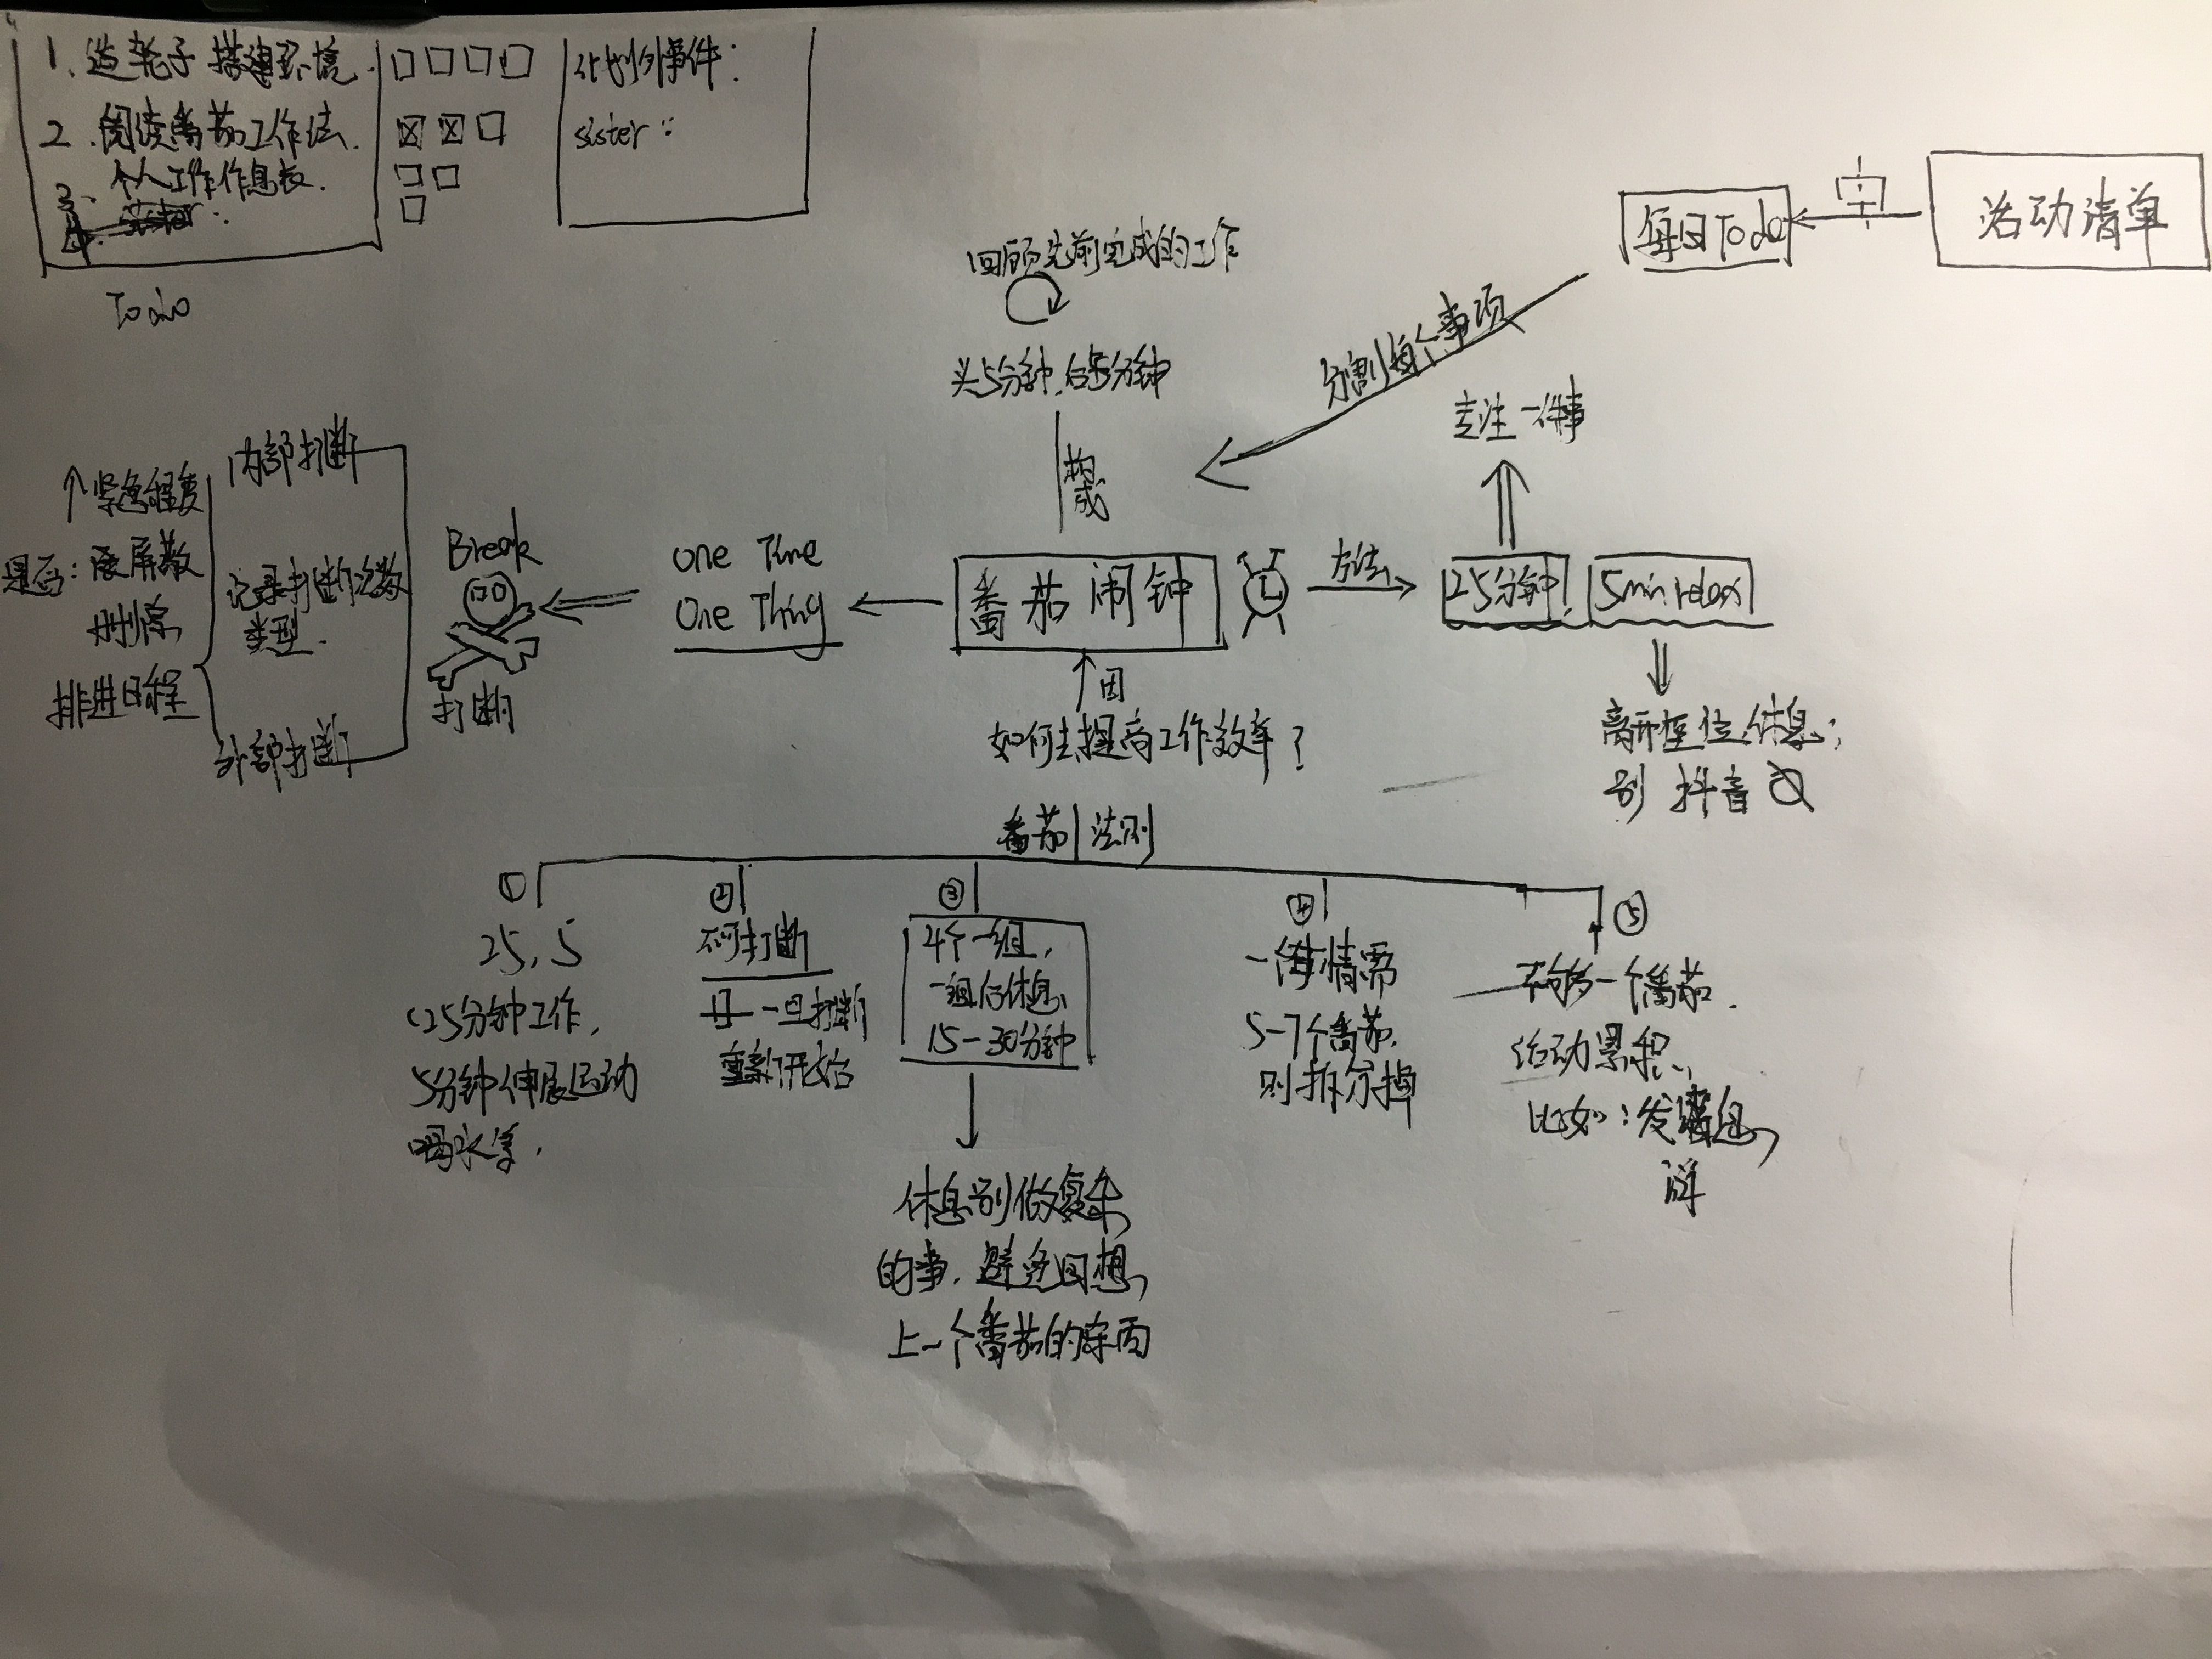 1、造轮子 搭建环境.
2、阅读番茄工作法.
3、个人工作作息表.
4.
Todo
计划外事件:
sister:
活动清单
每日Todo
分割每个事项
回顾先前完成的工作
头5分钟,后5分钟
构成
番茄闹钟
方法
25分钟,
5min relax
专注一件事
离开座位,休息;
别 抖音
因
如何去提高工作效率?
One Time
One Thing
Break
打断
内部打断
记录打断次数
类型.
外部打断
↑紧急程度
是否:
删除
排进日程
番茄 法则
①
25,5
25分钟工作,
5分钟伸展运动
喝水等.
②
不可打断
一旦打断
重新开始
③
4个一组,
一组后休息
15-30分钟
休息别做复杂
的事,避免回想
上一个番茄的东西
④
一件事情需
5-7个番茄,
则拆分掉
⑤
不够一个番茄.
活动累积,
比如:发消息